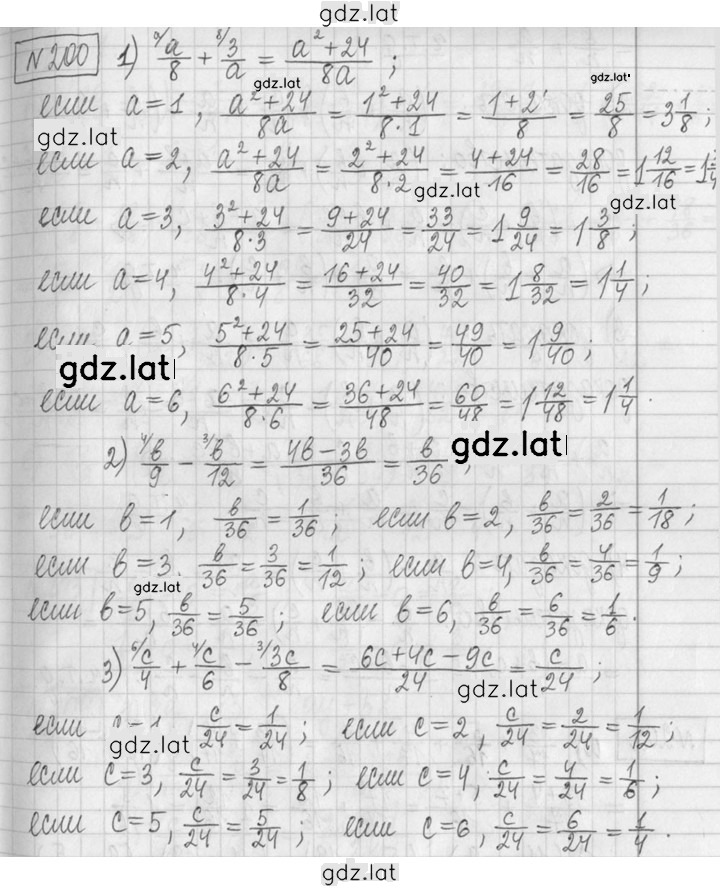 gdz.lat
N200 1) ᵃ/a/8 + ⁸/3/a = (a² + 24)/8a ;
gdz.lat gdz.lat
если a=1, (a² + 24)/8a = (1² + 24)/(8·1) = (1 + 2)/8 = 25/8 = 3 1/8 ;
gdz.lat
если a=2, (a² + 24)/8a = (2² + 24)/(8·2) = (4 + 24)/16 = 28/16 = 1 12/16 = 1
gdz.lat gdz.lat
если a=3, (3² + 24)/(8·3) = (9 + 24)/24 = 33/24 = 1 9/24 = 1 3/8 ;
если a=4, (4² + 24)/(8·4) = (16 + 24)/32 = 40/32 = 1 8/32 = 1 1/4 ;
если a=5, (5² + 24)/(8·5) = (25 + 24)/40 = 49/40 = 1 9/40 ;
gdz.lat
если a=6, (6² + 24)/(8·6) = (36 + 24)/48 = 60/48 = 1 12/48 = 1 1/4 .
gdz.lat
2) ⁴/в/9 − ³/в/12 = (4в − 3в)/36 = в/36 ;
если в=1, в/36 = 1/36 ; если в=2, в/36 = 2/36 = 1/18 ;
если в=3. в/36 = 3/36 = 1/12 ; если в=4, в/36 = 4/36 = 1/9 ;
gdz.lat
если в=5, в/36 = 5/36 ; если в=6, в/36 = 6/36 = 1/6 .
3) ⁶/c/4 + ⁴/c/6 − ³/3c/8 = (6c + 4c − 9c)/24 = c/24 ;
gdz.lat
если − 1 c/24 = 1/24 ; если c=2, c/24 = 2/24 = 1/12 ;
gdz.lat
если c=3, c/24 = 3/24 = 1/8 ; если c=4, c/24 = 4/24 = 1/6 ;
если c=5, c/24 = 5/24 ; если c=6, c/24 = 6/24 = 1/4 .
gdz.lat